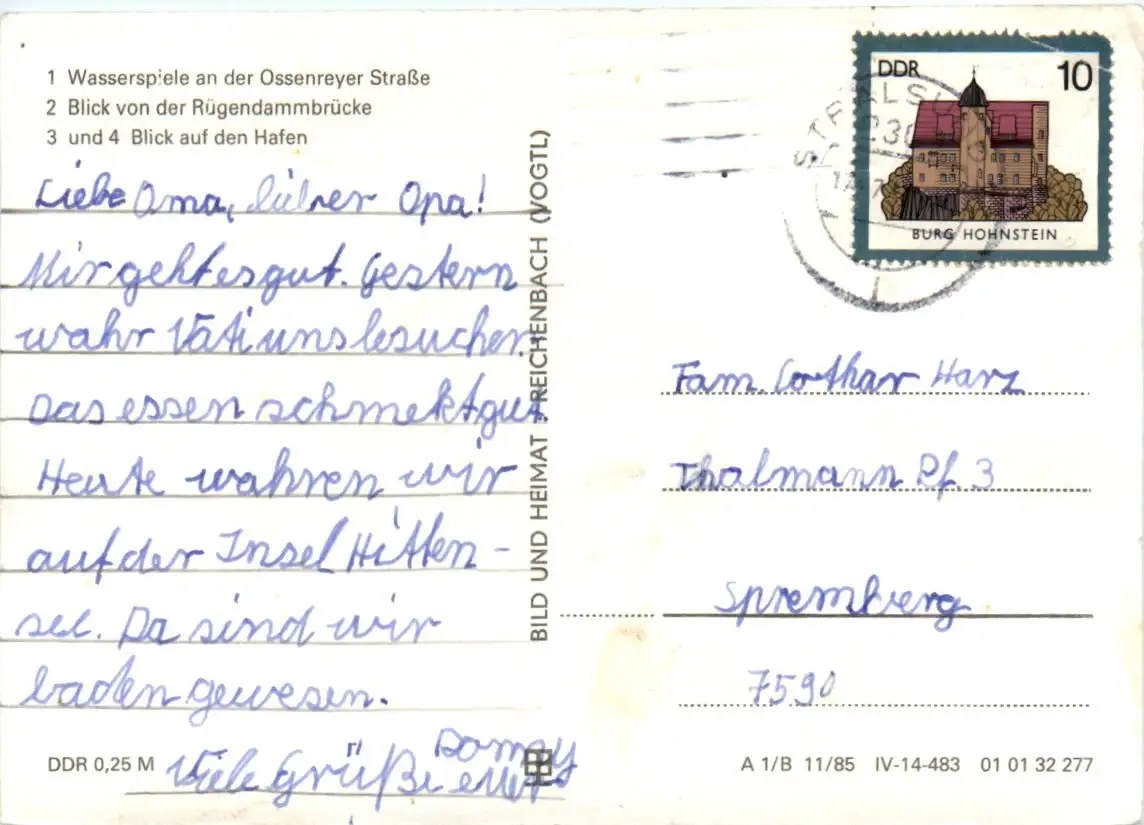 1 Wasserspiele an der Ossenreyer Straße
2 Blick von der Rügendammbrücke
3 und 4 Blick auf den Hafen
Liebe Oma, lieber Opa!
Mir geht es gut. Gestern
wahr Vati uns besuchen.
Das essen schmekt gut.
Heute wahren wir
auf der Insel Hitten-
see. Da sind wir
baden gewesen.
Viele Grüße euer
DDR 0,25 M
BILD UND HEIMAT REICHENBACH (VOGTL)
DDR 10
BURG HOHNSTEIN
STRALSUND
Fam. Lothar Harz
Thalmann Pf. 3
Spremberg
7590
A 1/B 11/85 IV-14-483 01 01 32 277